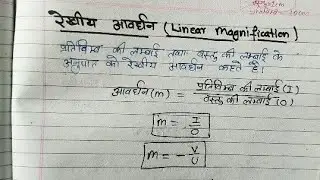 रेखीय आवर्धन (Linear Magnification)
प्रतिबिम्ब की लम्बाई तथा वस्तु की लम्बाई के
अनुपात को रेखीय आवर्धन कहते है।
आवर्धन (m) = प्रतिबिम्ब की लम्बाई (I)
वस्तु की लम्बाई (O)
m = I
O
m = - V
U